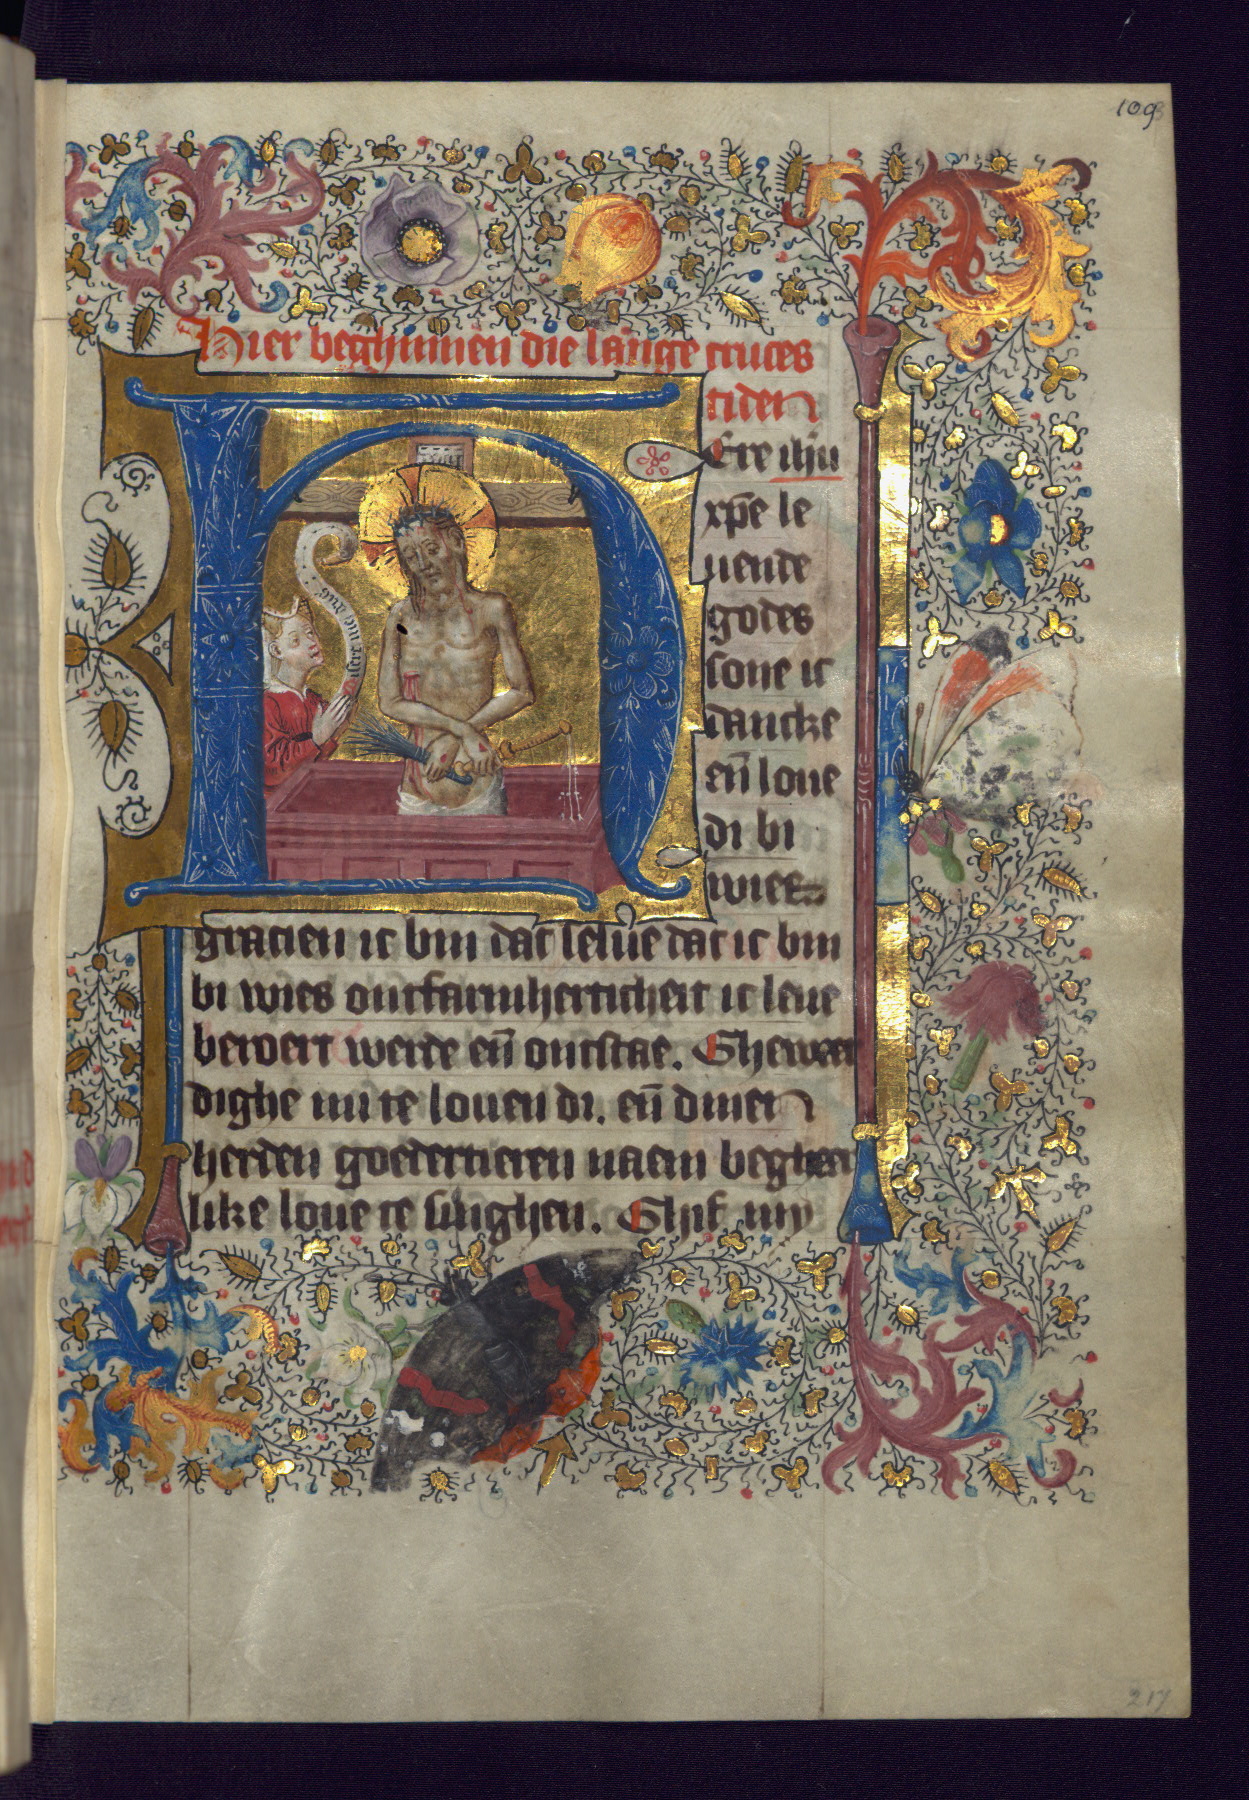 109
Hier beghinnen die lange cruces
tiden
Ere ihu
xp̄e le
uende
godes
sone ic
dancke
eñ loue
di bi
wies
gracien ic bin dat leuēdat ic bin
bi wies ontfarmherticheit ic leue
beroert werde eñ ontstae. Ghewer
dighe mi te louen di. eñ dinen
herden goedertieren naem begher
like loue te singhen. Ghif my
217